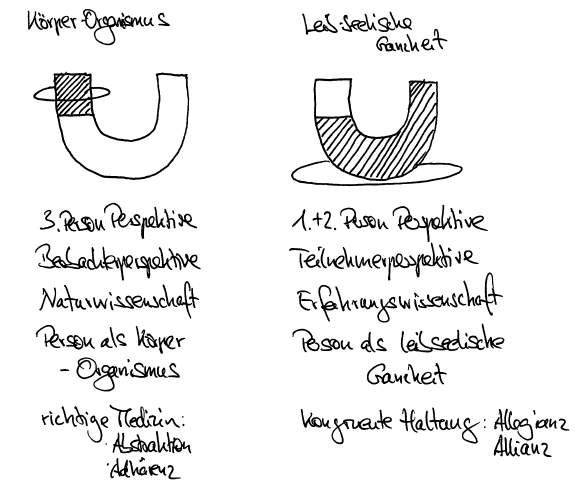 Körper-Organismus
3. Person Perspektive
Beobachterperspektive
Naturwissenschaft
Person als Körper
- Organismus
richtige Medizin:
· Abstraktion
· Adhärenz
Leib-seelische
Ganzheit
1.+2. Person Perspektive
Teilnehmerperspektive
Erfahrungswissenschaft
Person als leibseelische
Ganzheit
Kongruente Haltung: Allegianz
Allianz